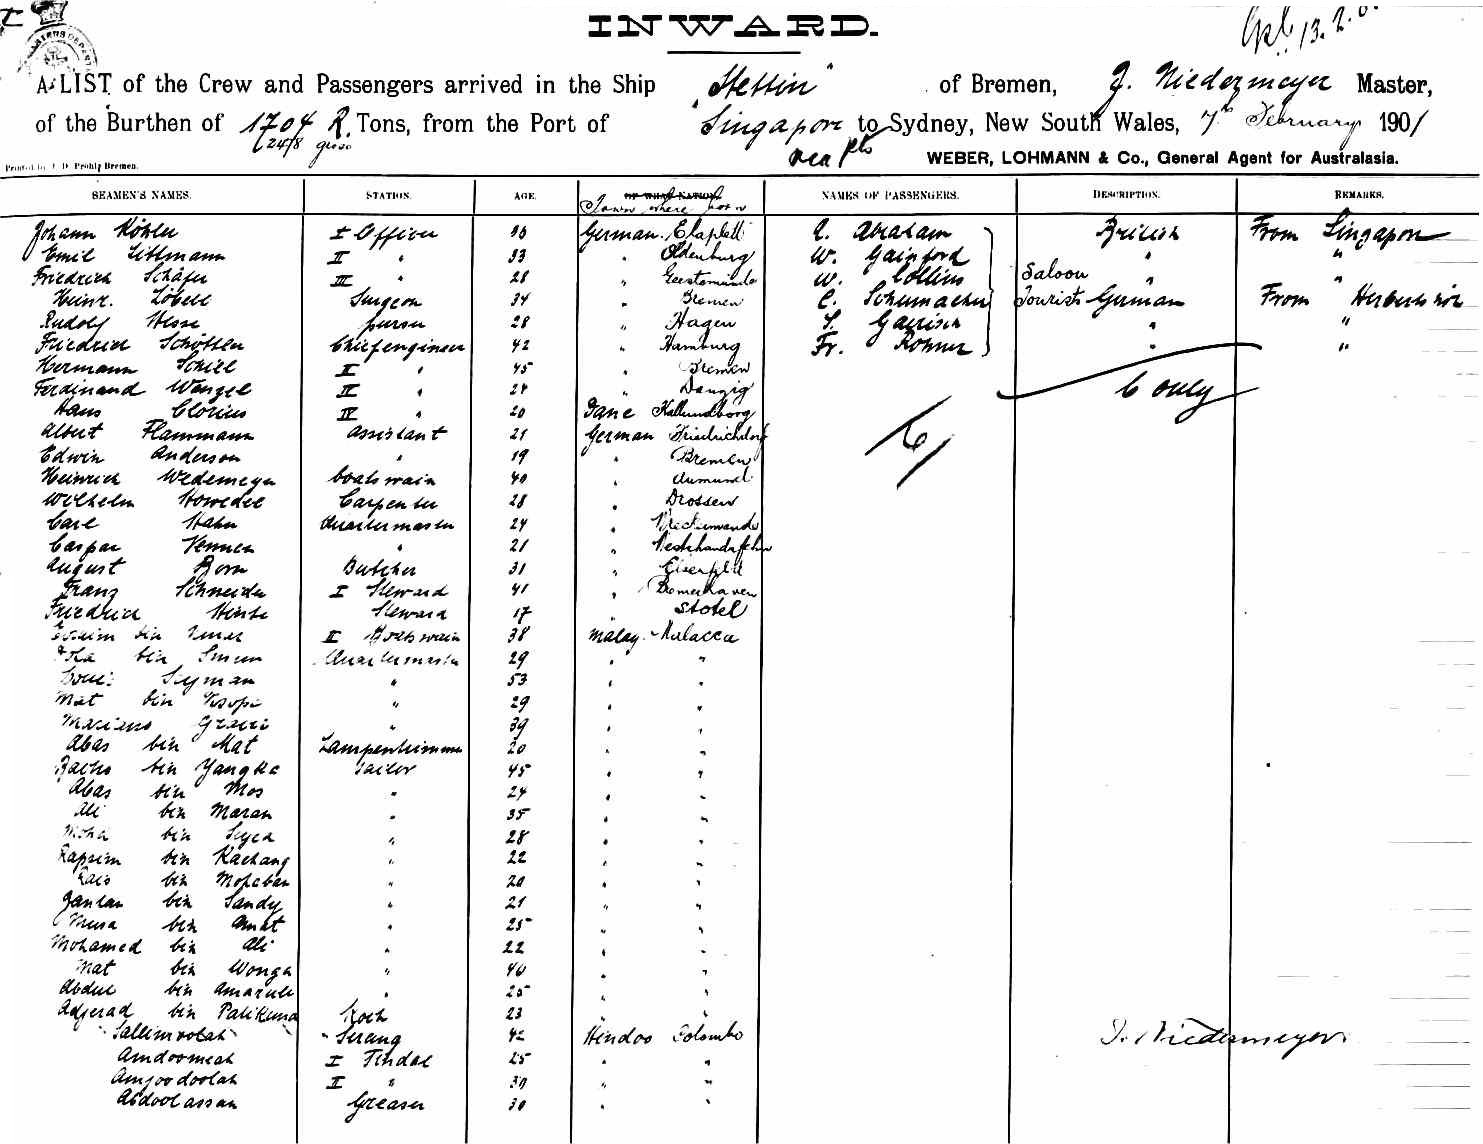 INWARD.
A LIST of the Crew and Passengers arrived in the Ship "Stettin" of Bremen, J. Niedermeyer Master,
of the Burthen of 1704 R. Tons, from the Port of Singapore to Sydney, New South Wales, 7th February 1901
2478 gross via pts WEBER, LOHMANN & Co., General Agent for Australasia.
SEAMEN'S NAMES. STATION. AGE. OF WHAT NATION. NAMES OF PASSENGERS. DESCRIPTION. REMARKS.
Town where born
Johann Köhler I Officer 36 German Elsfleth C. Abraham British From Singapore
Emil Littmann II " 33 " Oldenburg W. Gainford " "
Friedrich Schäfer III " 28 " Geestemünde W. Collins Saloon " "
Heinr. Löbell Surgeon 34 " Bremen C. Schumacher Tourists German From Herbertshöh
Rudolf Hesse purser 28 " Hagen S. " "
Friedrich Schötten Chiefengineer 42 " Hamburg Fr. Rohner " "
Hermann Schill I " 45 " Bremen
Ferdinand Wenzel II " 24 " Danzig 6 only
Hans Clorius IV " 20 Dane Kallundborg
Albert Flammann assistant 21 German Friedrichsdorf 6/
Edwin Anderson " 19 " Bremen
Heinrich Wedemeyer boatswain 40 " Aumund
Wilhelm Howedel Carpenter 28 " Drossen
Carl Hahn Quartermaster 24 "
Caspar Vennen " 21 "
August Born Butcher 31 " Eiserfeld
Franz Schneider I Steward 41 " Bremerhaven
Friedrich Hinte Steward 17 " Stotel
bin II Boatswain 38 malay Malacca
bin Quartermaster 29 " "
Seyman " 53 " "
Mat bin " 29 " "
Mariano " 39 " "
Abas bin Mat Lampentrimmer 20 " "
Bacho bin Yangka Sailor 45 " "
Abas bin Mos " 24 " "
Ali bin Maran " 35 " "
Moha bin Seyed " 28 " "
Rapsim bin Kachang " 22 " "
Rais bin " 20 " "
Jantan bin Sandy " 21 " "
Musa bin Amat " 25 " "
Mohamed bin Ali " 22 " "
Mat bin Wonga " 40 " "
Abdul bin " 25 " "
Adjerad bin Palikuna Koch 23 " "
Sallimoolah Serang 42 Hindoo Colombo J. Niedermeyer
Amdoomeah I Tindal 25 " "
Amjoodoolah II " 30 " "
Abdoolassan Greaser 30 " "